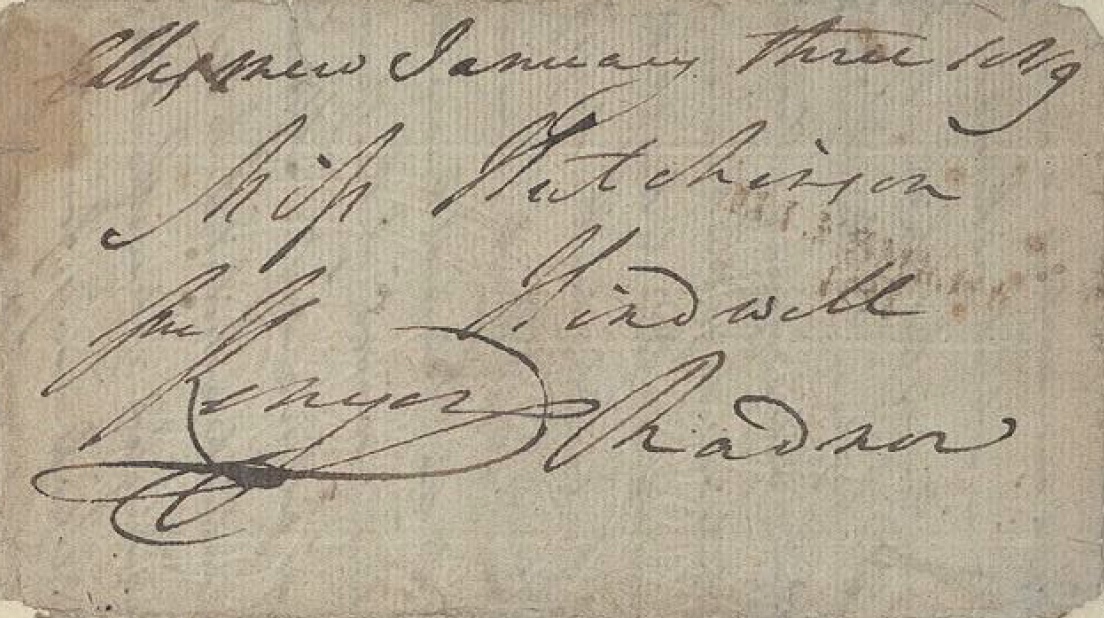 Ellesmere January three 1819
Miss Hutchinson
Hindwell
free
Kenyon Radnor